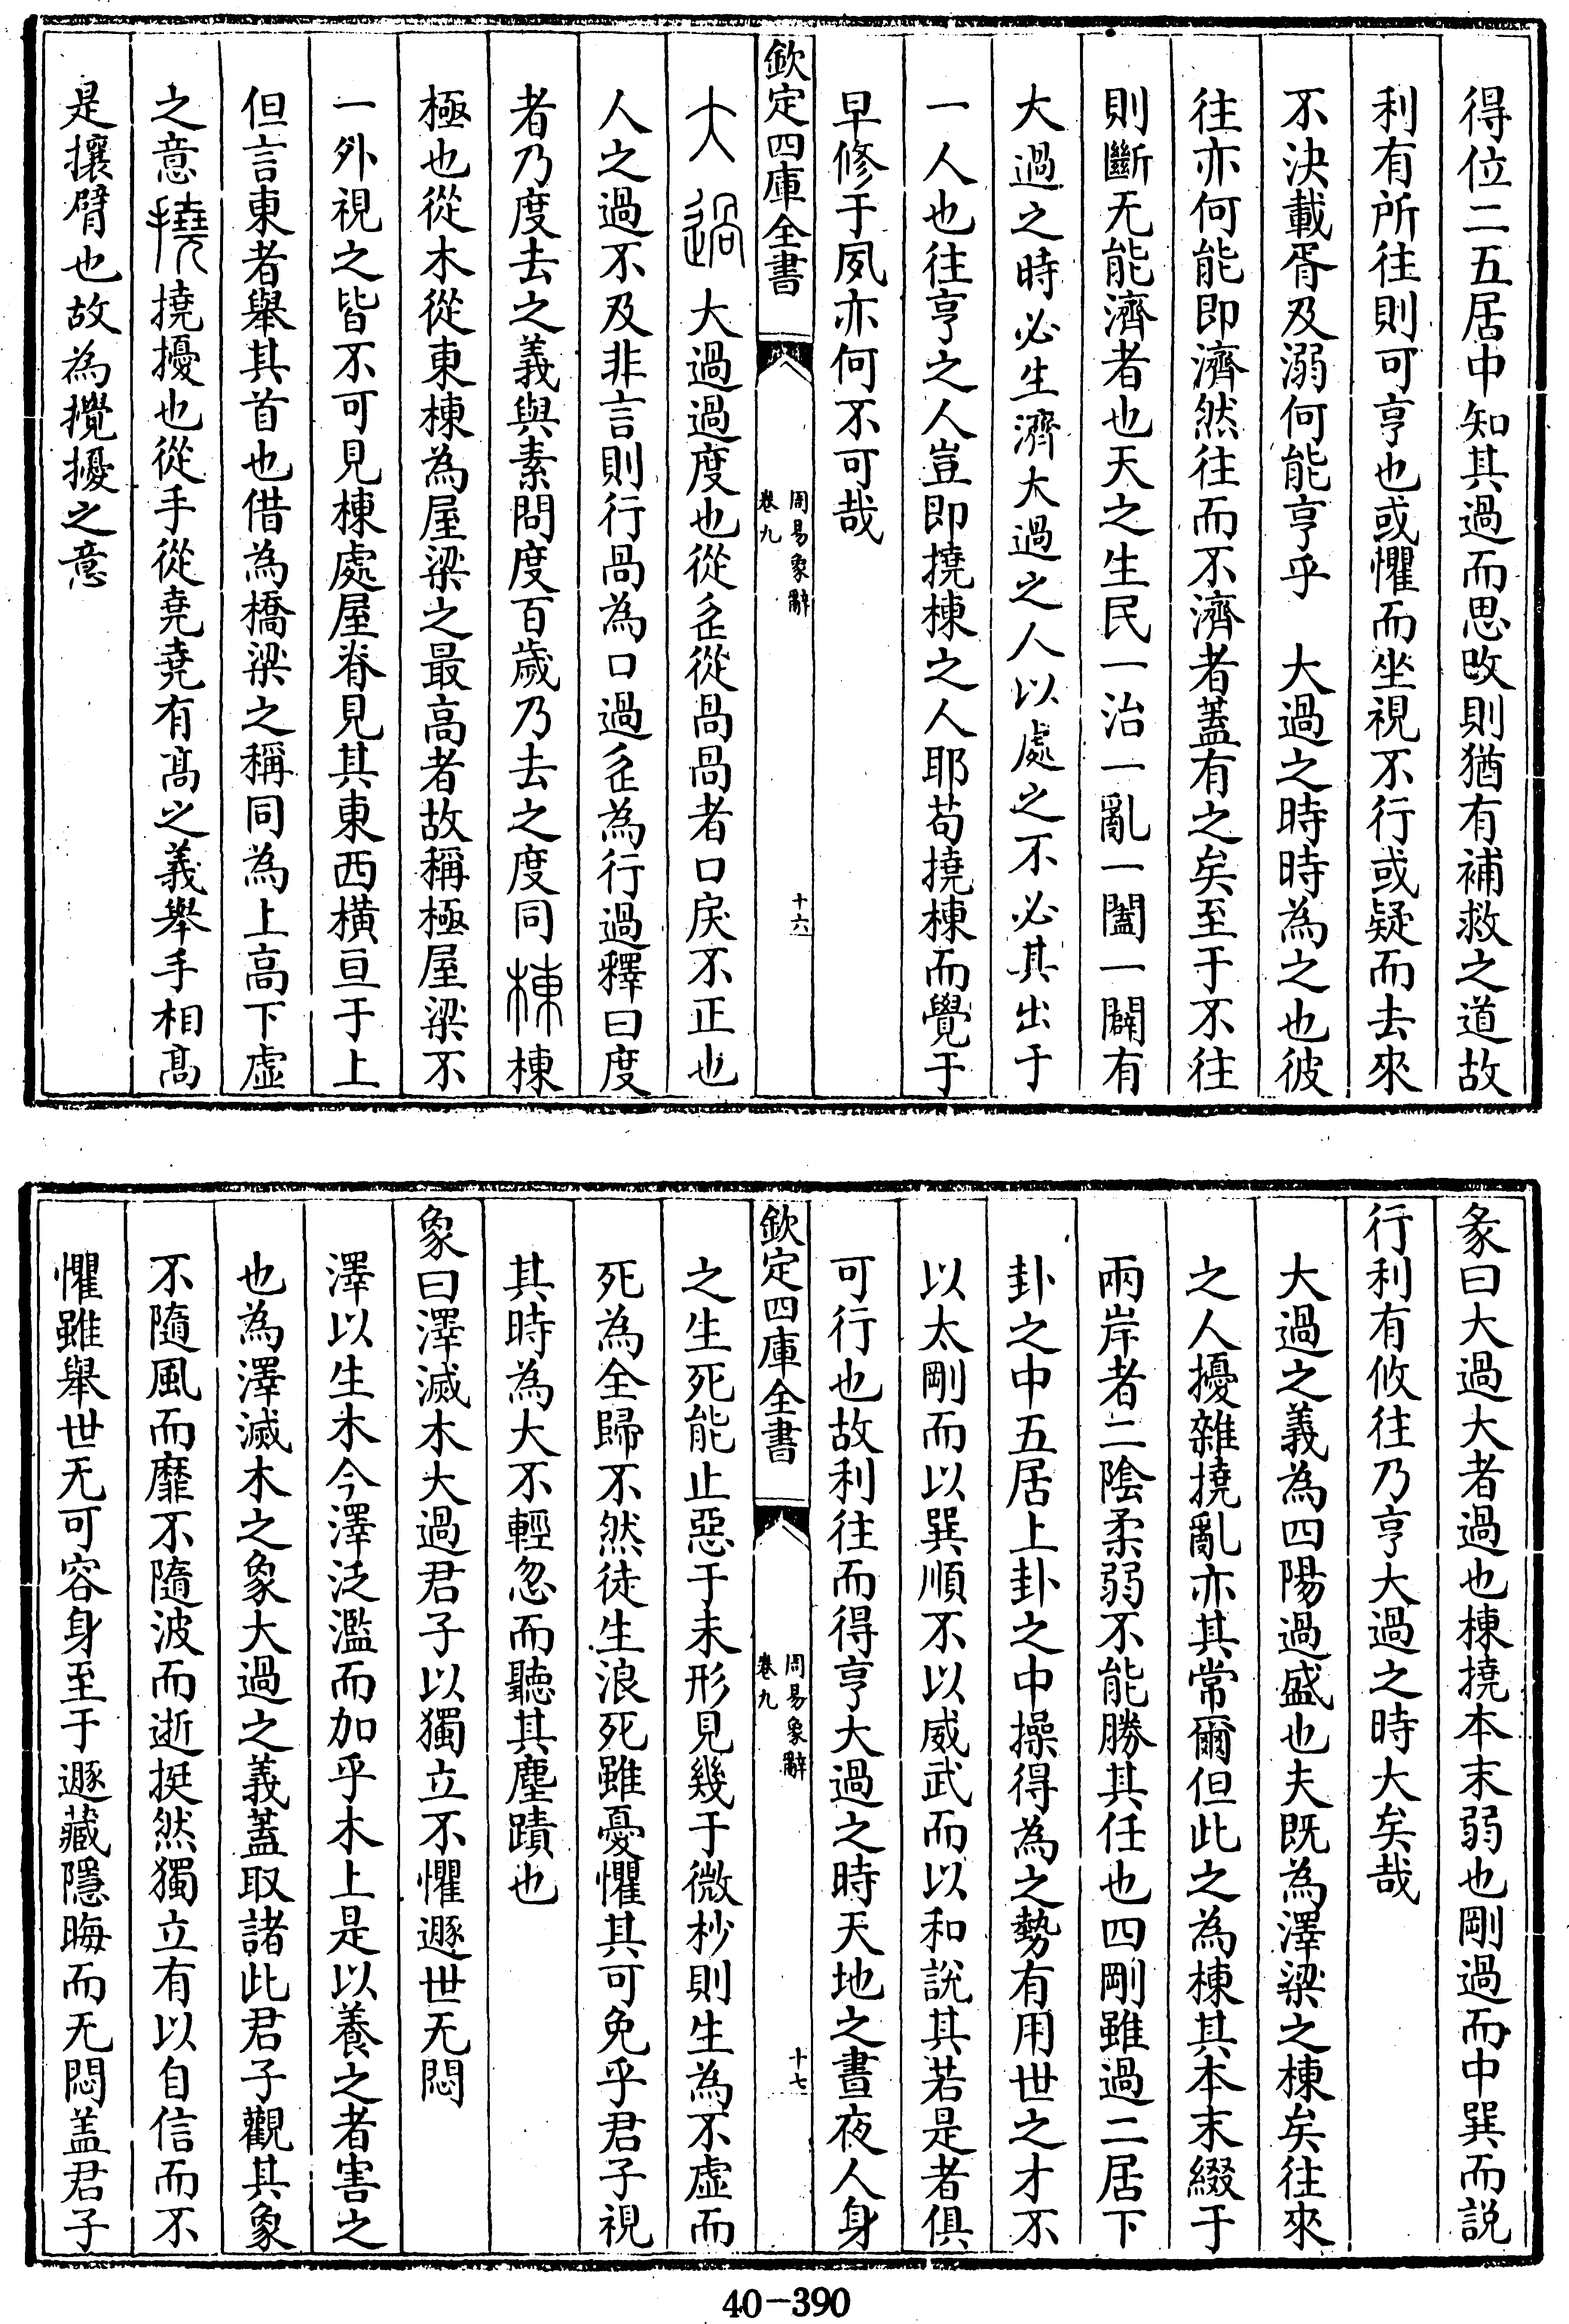 得位二五居中知其過而思改則猶有補救之道故
利有所往則可亨也或懼而坐視不行或疑而去來
不決載胥及溺何能亨乎　大過之時時為之也彼
往亦何能即濟然往而不濟者蓋有之矣至于不往
則斷无能濟者也天之生民一治一亂一闔一闢有
大過之時必生濟大過之人以處之不必其出于
一人也往亨之人豈即撓棟之人耶苟撓棟而覺于
早修于夙亦何不可哉
欽定四庫全書
周易象辭
卷九
十六
大過大過過度也從辵從咼咼者口戾不正也
人之過不及非言則行咼為口過辵為行過釋曰度
者乃度去之義與素問度百歲乃去之度同棟棟
極也從木從東棟為屋梁之最高者故稱極屋梁不
一外視之皆不可見棟處屋脊見其東西橫亘于上
但言東者舉其首也借為橋梁之稱同為上高下虛
之意撓撓擾也從手從堯堯有髙之義舉手相髙
是攘臂也故為攪擾之意
彖曰大過大者過也棟撓本末弱也剛過而中巽而説
行利有攸往乃亨大過之時大矣哉
大過之義為四陽過盛也夫既為澤梁之棟矣往來
之人擾雜撓亂亦其常爾但此之為棟其本末綴于
兩岸者二陰柔弱不能勝其任也四剛雖過二居下
卦之中五居上卦之中操得為之勢有用世之才不
以太剛而以巽順不以威武而以和說其若是者俱
可行也故利往而得亨大過之時天地之晝夜人身
欽定四庫全書
周易象辭
卷九
十七
之生死能止惡于未形見幾于微杪則生為不虛而
死為全歸不然徒生浪死雖憂懼其可免乎君子視
其時為大不輕忽而聽其塵蹟也
象曰澤滅木大過君子以獨立不懼遯世无悶
澤以生木今澤泛濫而加乎木上是以養之者害之
也為澤滅木之象大過之義蓋取諸此君子觀其象
不隨風而靡不隨波而逝挺然獨立有以自信而不
懼雖舉世无可容身至于遯藏隱晦而无悶盖君子
40-390